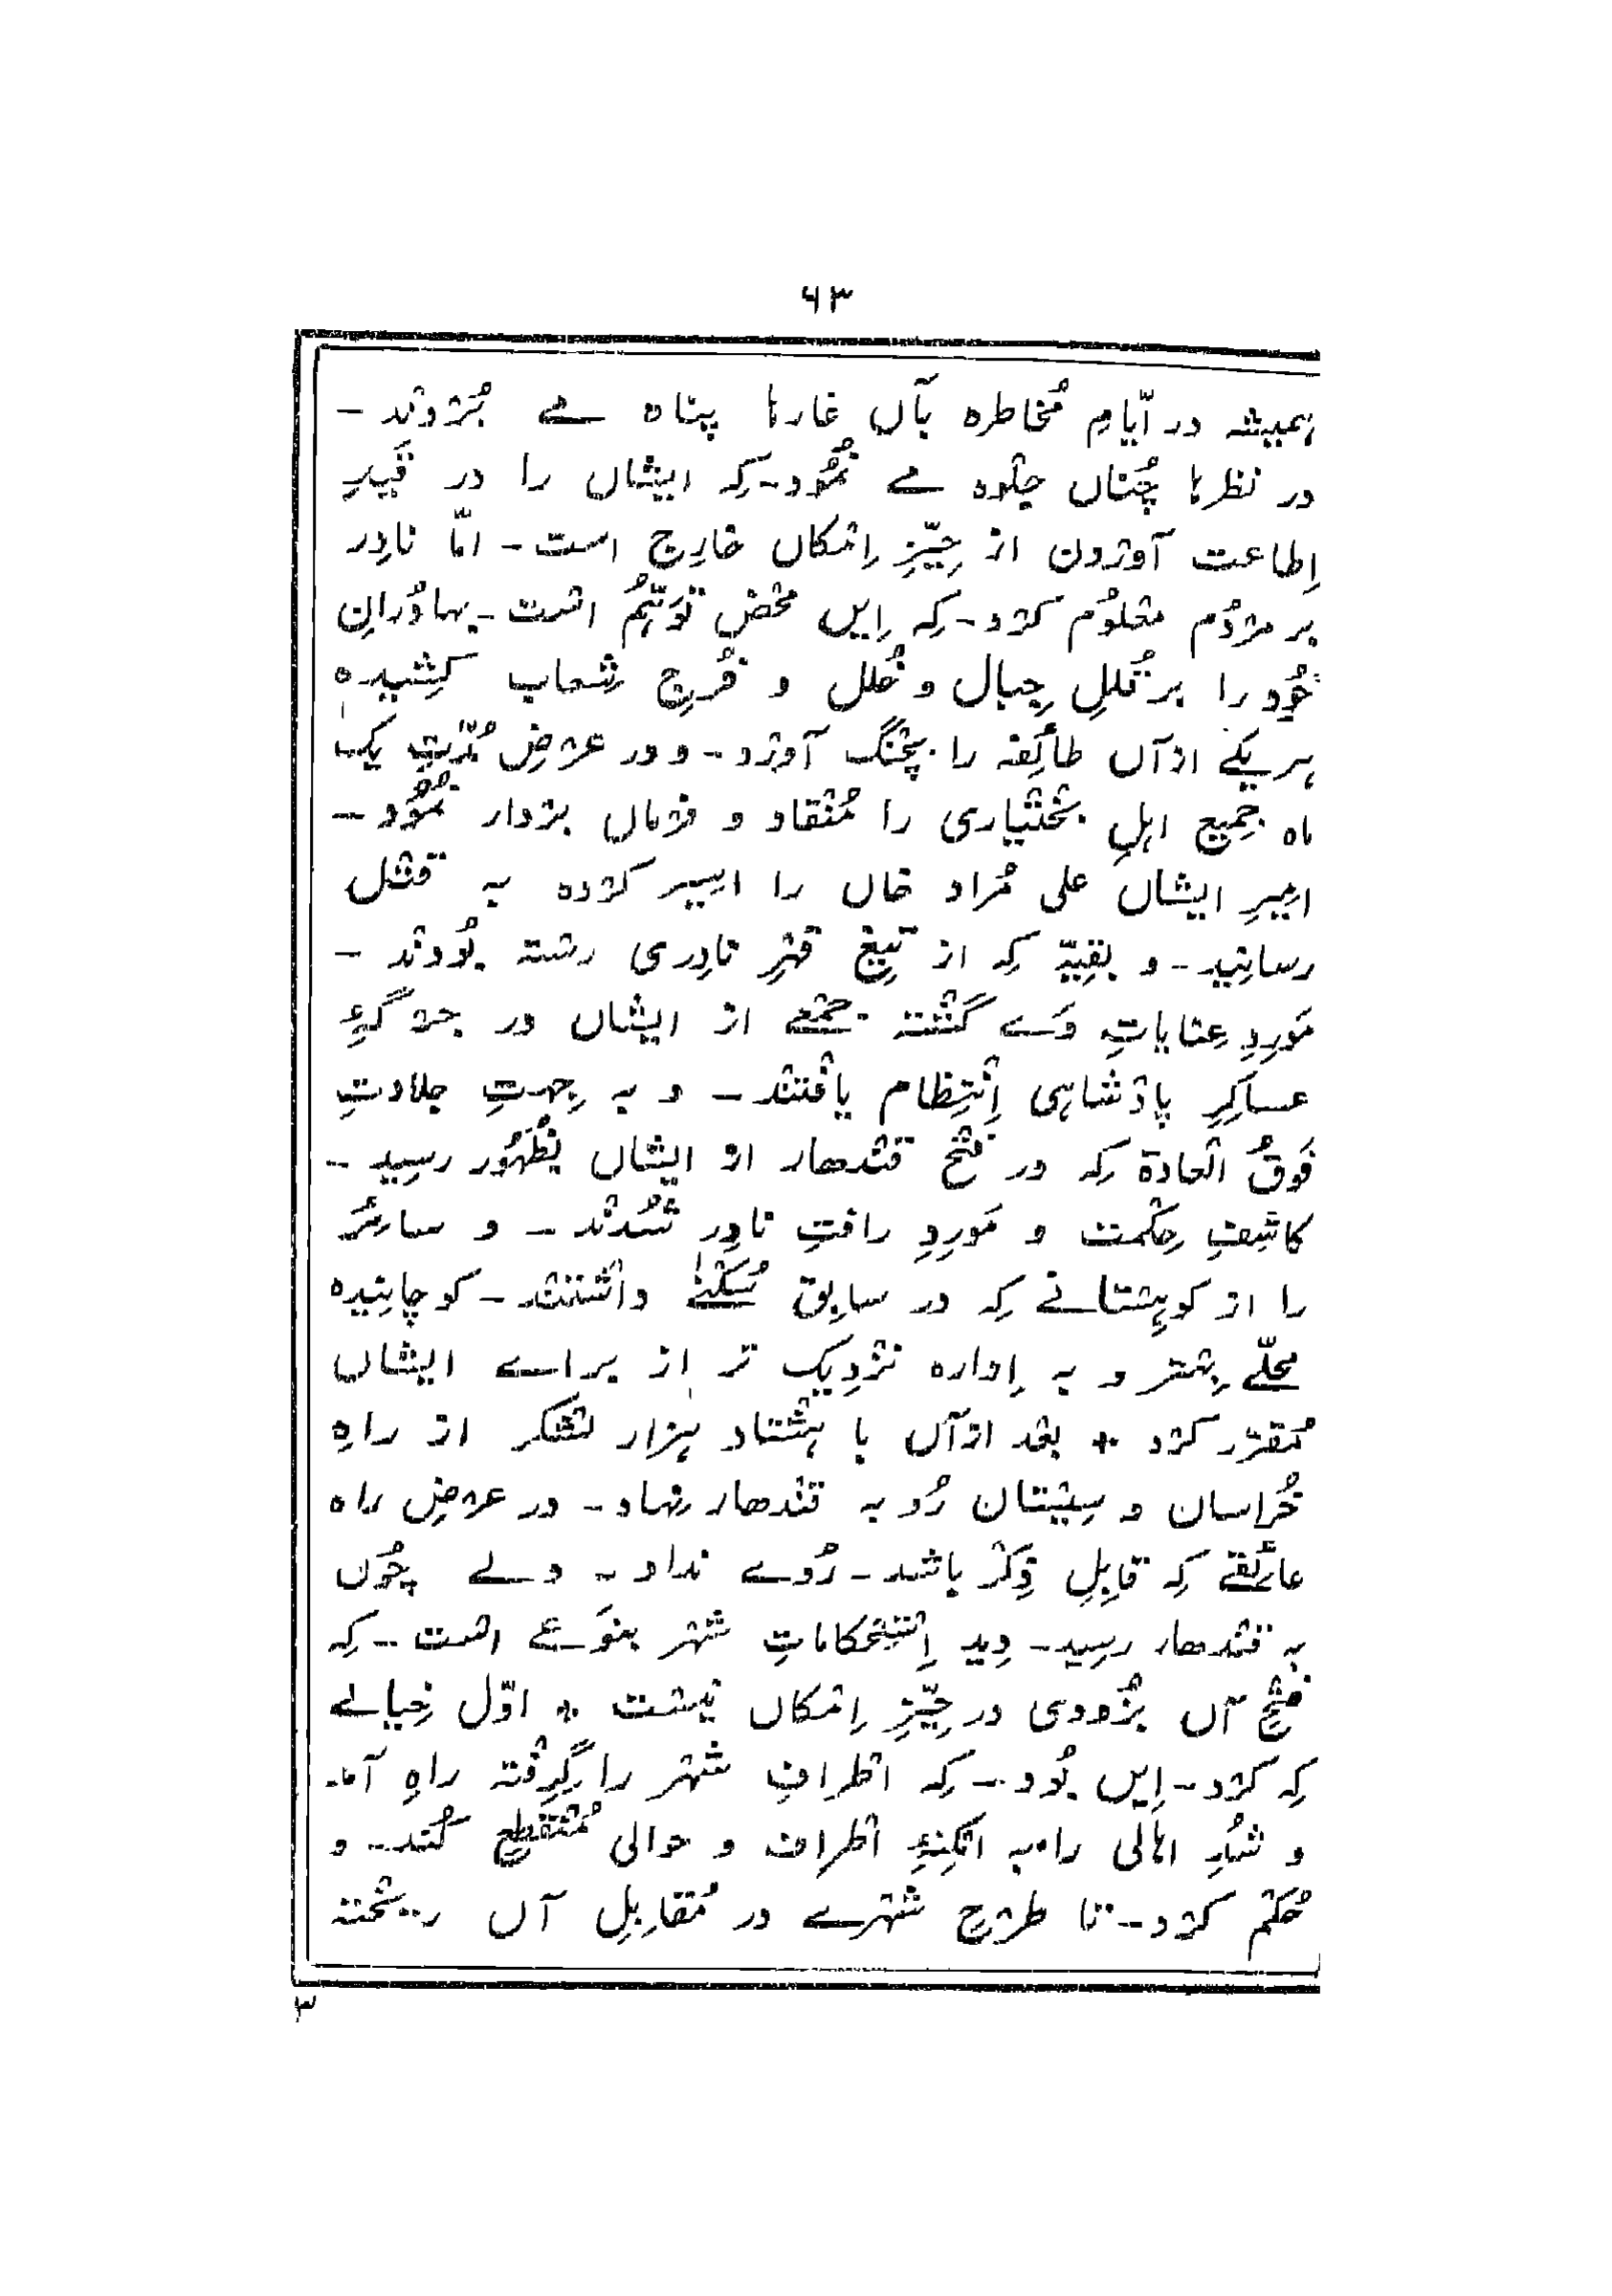 ۶۳
ہمیشہ در ایّامِ مُخاطرہ بآں غارہا پناہ مے بُرْدند -
در نظرہا چُناں جلْوہ مے نُمُود - کہ ایشاں را در قَیدِ
اِطاعت آوردن از حَیّزِ اِمْکاں خارج است - امّا نادِر
بر مرْدُم معْلُوم کرْد - کہ اِیں محْض تَوَہُّم اسْت - بہادُرانِ
خُود را بر قُلَلِ جبال و خُلَل و فُرَجِ شِعاب کشیدہ
ہر یکے ازآں طائفہ را بچنگ آورْد - و در عرْضِ مُدّتِ یک
ماہ جمیع اہلِ بخْتیاری را مُنْقاد و فرْماں برْدار نُمُود -
امیرِ ایشاں علی مُراد خاں را اسیر کرْدہ بہ قتْل
رسانید - و بقیّہ کہ از تیغِ قہْرِ نادِری رستہ بُودند -
مَورِدِ عنایاتِ وَے گشْتہ جمْعے از ایشاں در جرگۂ
عساکرِ پادْشاہی اِنْتِظام یافْتند - و بہ جہتِ جلادتِ
فَوقُ الْعادۃ کہ در فتْحِ قنْدھار از ایشاں بظُہُور رسید -
کاشِفِ حکْمت و مَورِدِ رافتِ نادِر شُدند - و سائر
را از کوہِسْتانے کہ در سابق سُکْنےٰ داشْتند - کوچانیدہ
محلّے بہتر و بہ اِدارہ نزْدیک تر از براے ایشاں
مُقرّر کرْد * بعْد ازآں با ہشْتاد ہزار لشْکر از راہِ
خُراسان و سِیسْتان رُو بہ قنْدھار نہاد - در عرْضِ راہ
عائقے کہ قابِلِ ذِکْر باشد - رُوے نداد - ولے چُوں
بہ قنْدھار رسید - دِید اِسْتِحْکاماتِ شہْر بنَوعے اسْت - کہ
فتْحِ آں بزُودی در حَیّزِ اِمْکاں نیسْت * اوّل خیالے
کہ کرْد - اِیں بُود - کہ اطْرافِ شہْر را گِرِفْتہ راہِ آمد
و شُدِ اہالی را بہ امْکِنۂ اطْراف و حوالی مُنْقطع کُند - و
حُکْم کرْد - تا طرْحِ شہْرے در مُقابِلِ آں ریخْتہ
۳